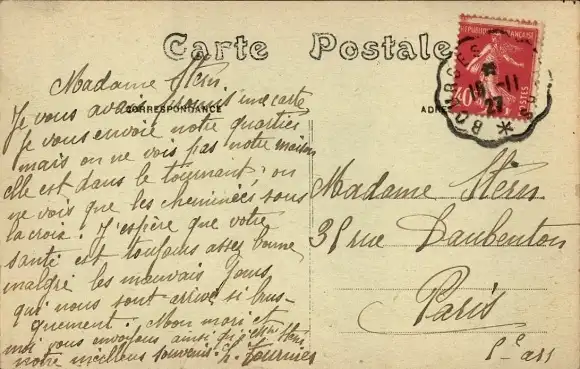 Carte Postale
CORRESPONDANCE
Madame Stern
Je vous avais promis une carte
Je vous envoie notre quartier
mais on ne vois pas notre maison
elle est dans le tournant : on
ne vois que les cheminées sous
la croix. J'espère que votre
santé est toujours assez bonne
malgré les mauvais Jours
qui nous sont arrivé si brus-
quement. Mon mari et
moi vous envoyons ainsi qu'à Mr Stern
notre meilleurs souvenir. L. Fournier
Madame Stern
31 rue Daubenton
Paris
5e arr
POSTES
40
19 -11
27